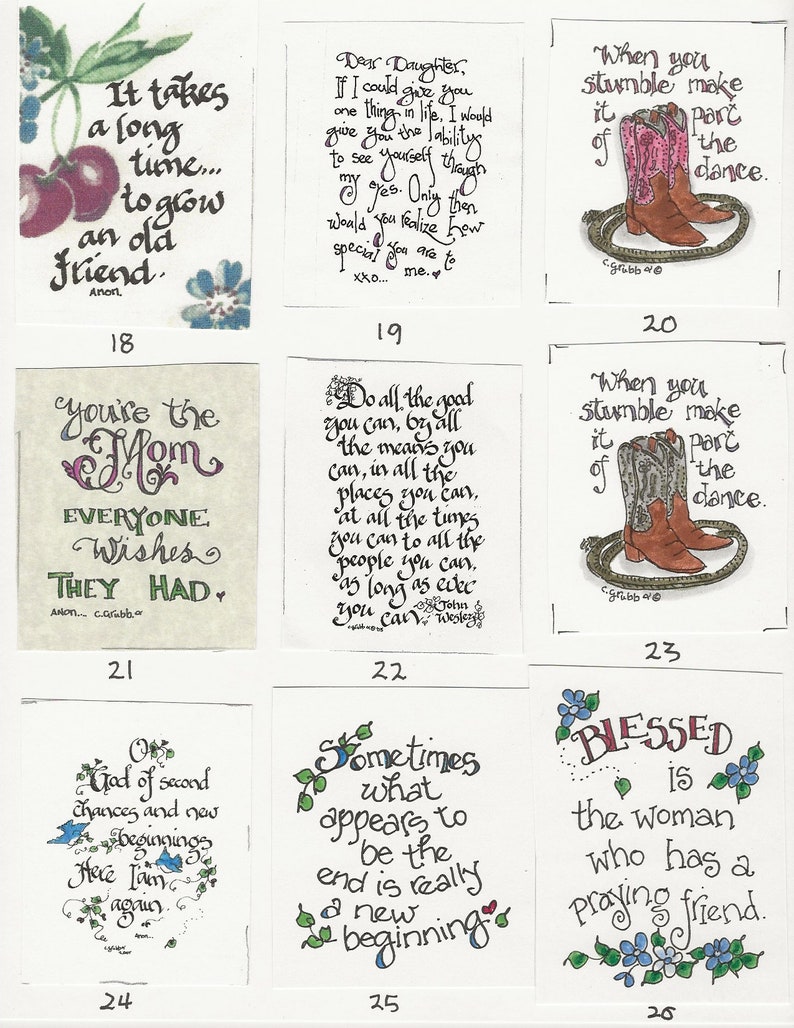 It takes
a long
time...
to grow
an old
friend.
Anon.
18
Dear Daughter,
If I could give you
one thing in life, I would
give you the ability
to see yourself through
my eyes. Only then
would you realize how
special you are to
me.
xxo...
19
When you
stumble make
it part
of the
dance.
C. Grubb ©
20
You're the
Mom
EVERYONE
Wishes
THEY HAD.
ANON... C. Grubb.
21
Do all the good
you can, by all
the means you
can, in all the
places you can,
at all the times
you can to all the
people you can,
as long as ever
you can. John
Wesley
22
When you
stumble make
it part
of the
dance.
C. Grubb ©
23
O
God of second
chances and new
beginnings
Here I am
again.
Anon...
24
Sometimes
what
appears to
be the
end is really
a new
beginning
25
BLESSED
is
the woman
who has a
praying friend.
26